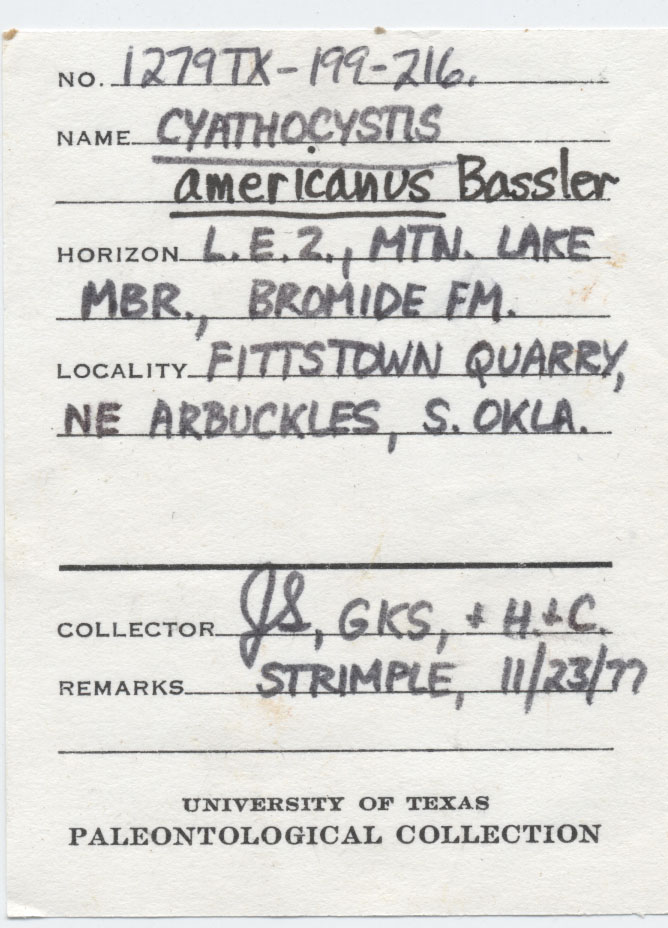 NO. 1279TX-199-216.
NAME CYATHOCYSTIS
americanus Bassler
HORIZON L.E.Z., MTN. LAKE
MBR., BROMIDE FM.
LOCALITY FITTSTOWN QUARRY,
NE ARBUCKLES, S. OKLA.
COLLECTOR JS, GKS, + H.+C.
REMARKS STRIMPLE, 11/23/77
UNIVERSITY OF TEXAS
PALEONTOLOGICAL COLLECTION